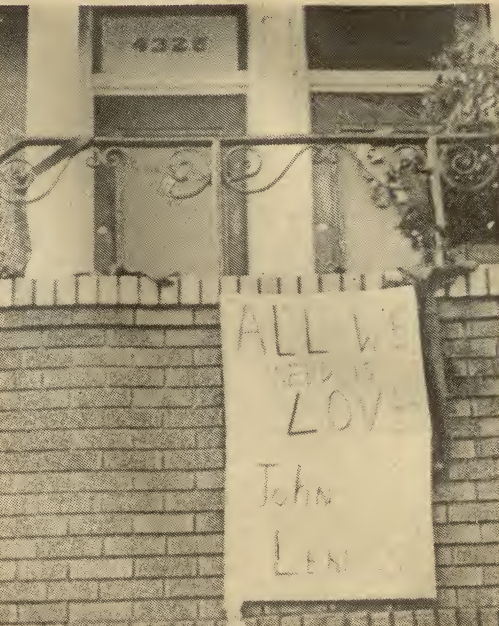 4326
ALL WE
NEED IS
LOVE
John